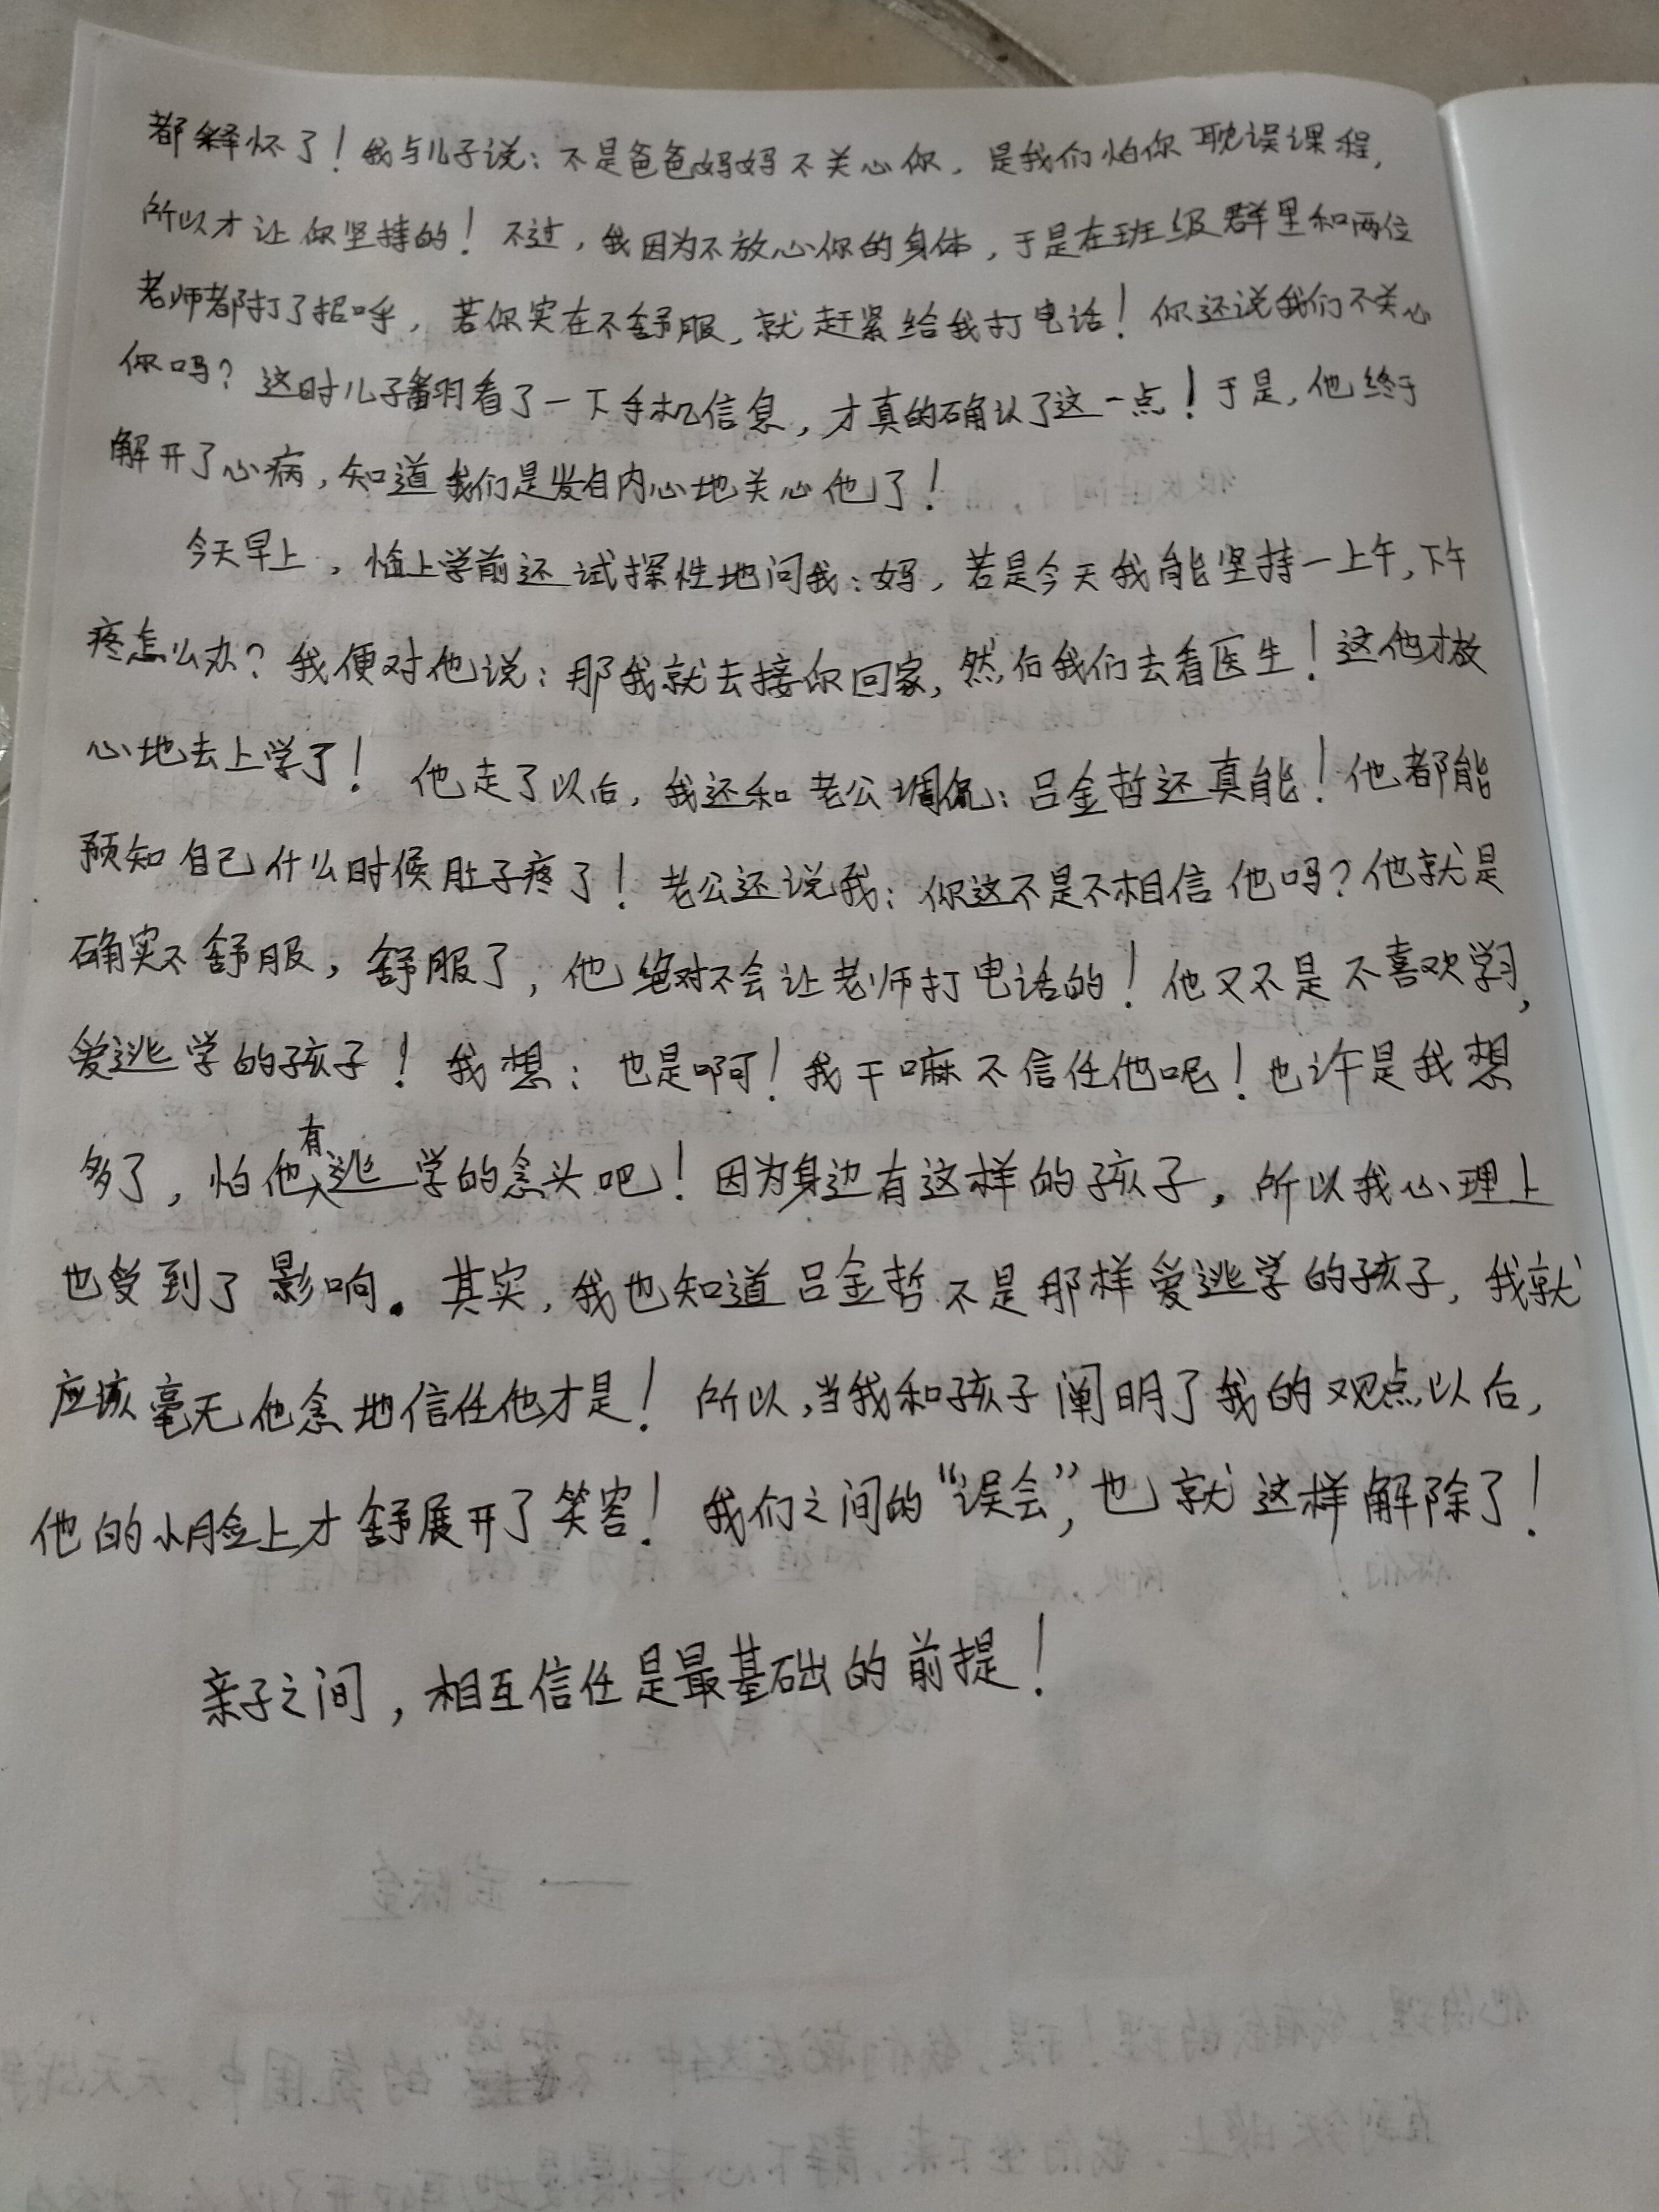 都释怀了！我与儿子说：不是爸爸妈妈不关心你，是我们怕你耽误课程，
所以才让你坚持的！不过，我因为不放心你的身体，于是在班级群里和两位
老师都打了招呼，若你实在不舒服，就赶紧给我打电话！你还说我们不关心
你吗？这时儿子翻看了一下手机信息，才真的确认了这一点！于是，他终于
解开了心病，知道我们是发自内心地关心他了！
今天早上，临上学前还试探性地问我：妈，若是今天我能坚持一上午，下午
疼怎么办？我便对他说：那我就去接你回家，然后我们去看医生！这他才放
心地去上学了！他走了以后，我还和老公调侃：吕金哲还真能！他都能
预知自己什么时候肚子疼了！老公还说我：你这不是不相信他吗？他就是
确实不舒服，舒服了，他绝对不会让老师打电话的！他又不是不喜欢学习，
爱逃学的孩子！我想：也是啊！我干嘛不信任他呢！也许是我想
多了，怕他有逃学的念头吧！因为身边有这样的孩子，所以我心理上
也受到了影响。其实，我也知道吕金哲不是那样爱逃学的孩子，我就
应该毫无他念地信任他才是！所以，当我和孩子阐明了我的观点以后，
他的小脸上才舒展开了笑容！我们之间的“误会”，也就这样解除了！
亲子之间，相互信任是最基础的前提！